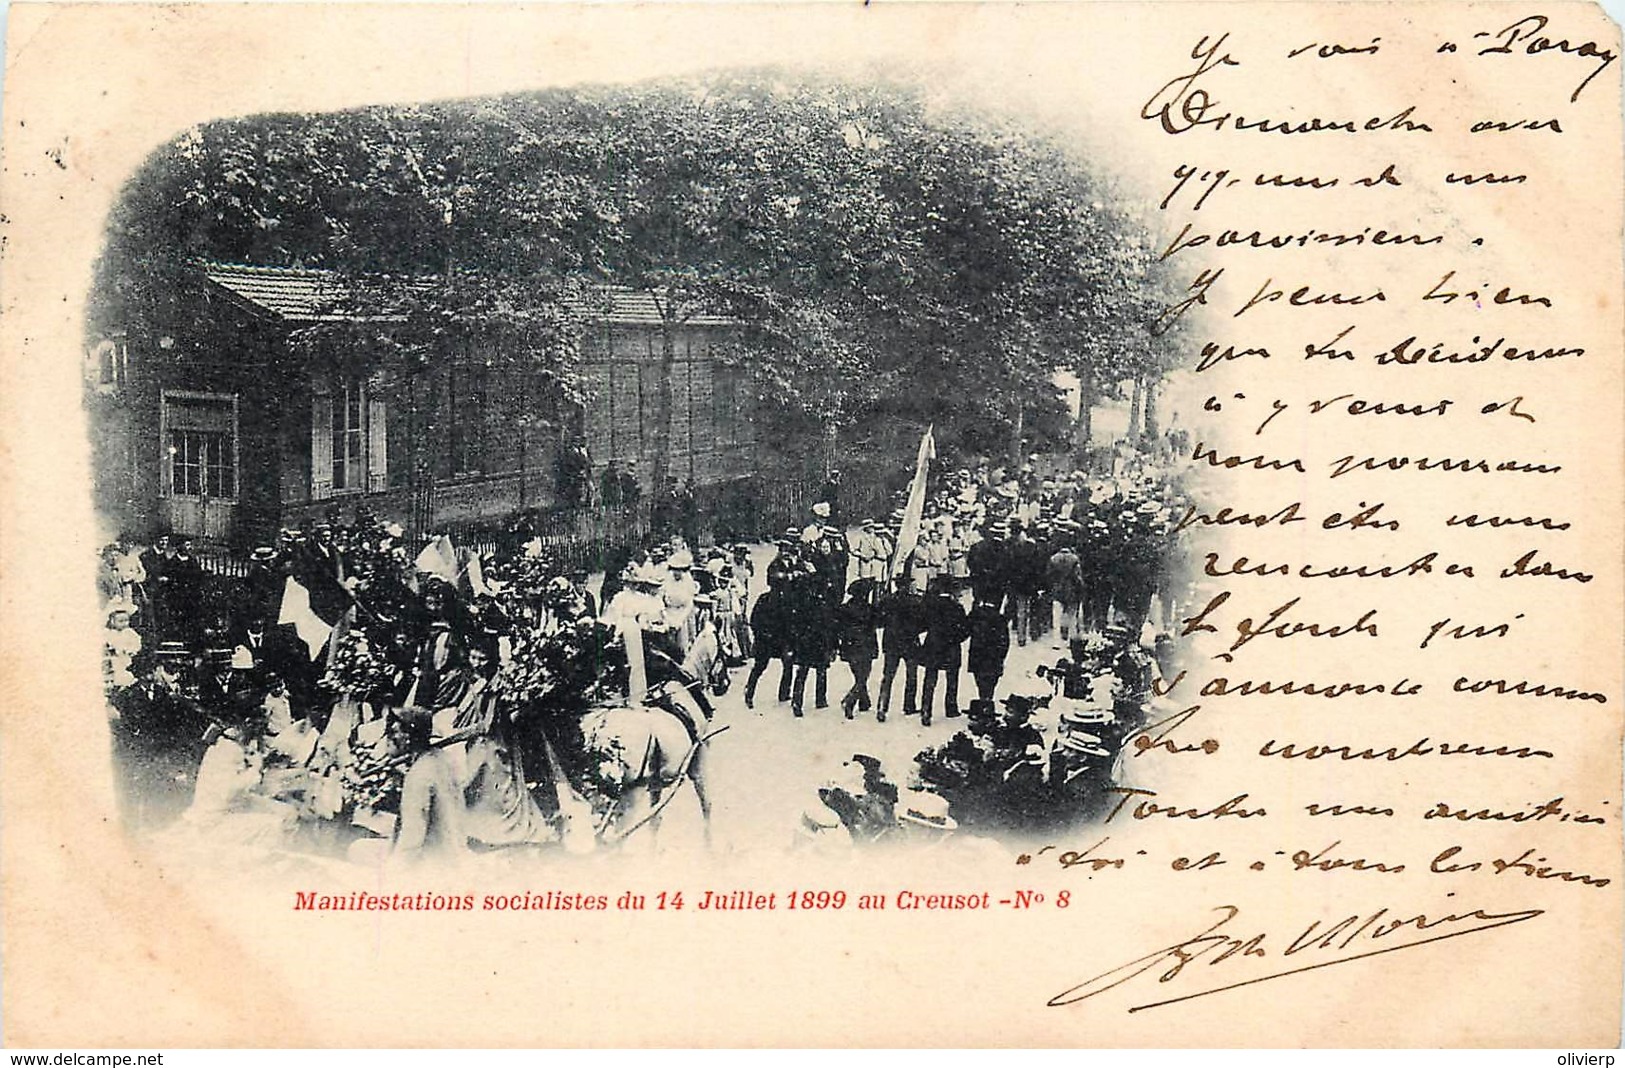 Je vais à Paray
Dimanche avec
q.q. uns de mes
paroissiens.
Je pense bien
que tu décideras
à y venir et
nous pourrons
peut être nous
rencontrer dans
la foule qui
s'annonce comme
très nombreuse
Toutes mes amitiés
à toi et à tous les tiens
Manifestations socialistes du 14 Juillet 1899 au Creusot -No 8
www.delcampe.net
olivierp